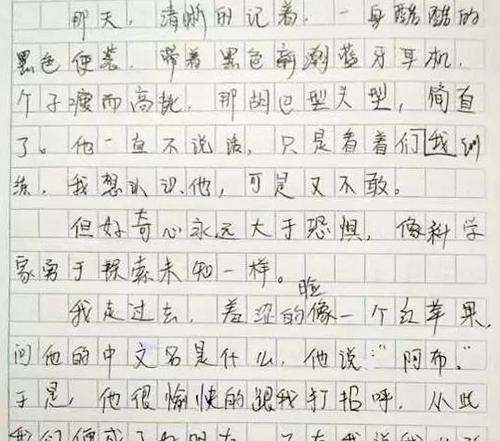 那天，清晰的记着，一身酷酷的
黑色便装，带着黑色新潮蓝牙耳机，
个子瘦而高挑，那胡巴型头型，简直
了。他一直不说话，只是看着们我训
练，我想认识他，可是又不敢。
但好奇心永远大于恐惧，像科学
家勇于探索未知一样。
我走过去，羞涩的脸像一个红苹果，
问他的中文名是什么，他说："阿布。"
于是，他很愉快的跟我打招呼，从此
我们便成了好朋友